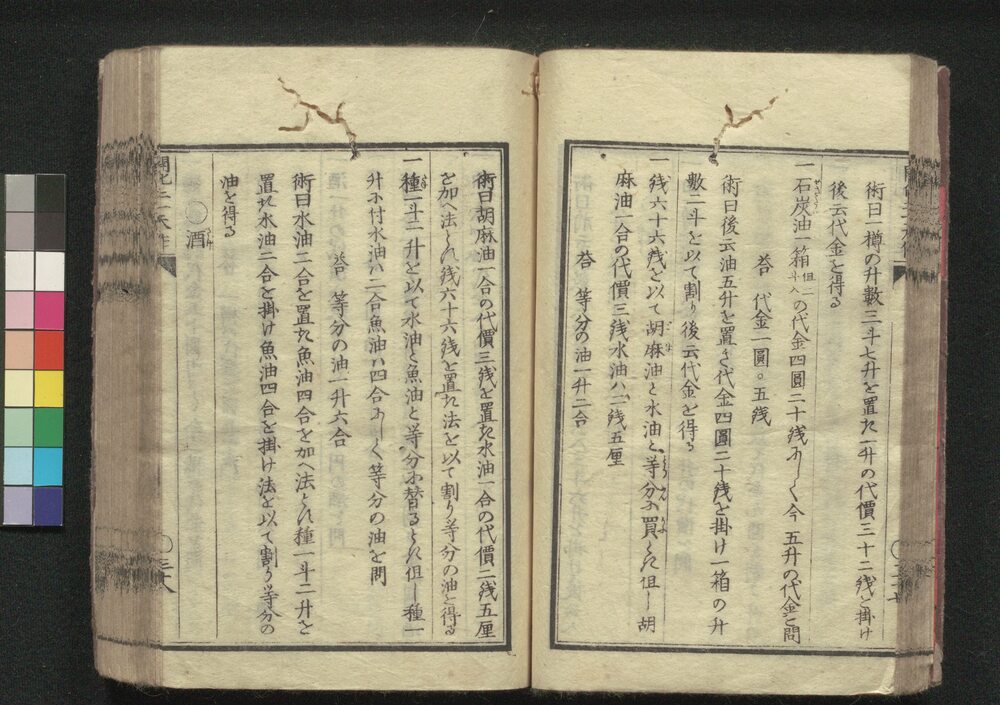 術曰一樽の升數三斗七升を置た一升の代價三十二銭を掛け
後云代金を得る
一石炭油一箱但一斗入の代金四圓二十銭にして今五升の代金を問
荅 代金一圓〇五銭
術曰後云油五升を置き代金四圓二十銭を掛け一箱の升
數二斗を以て割り後云代金を得る
一銭六十六銭を以て胡麻油と水油と等分に買とき但し胡
麻油一合の代價三銭水油ハ二銭五厘
荅 等分の油一升二合
術曰胡麻油一合の代價三銭を置き水油一合の代價二銭五厘
を加へ法とし銭六十六銭を置き法を以て割り等分の油を得る
一種一斗二升を以て水油と魚油と等分に替るとき但し種一
升に付水油ハ二合魚油ハ四合にして等分の油を問
荅 等分の油一升六合
術曰水油二合を置き魚油四合を加へ法とし種一斗二升を
置き水油二合を掛け魚油四合を掛け法を以て割り等分の
油を得る
〇酒
三十八